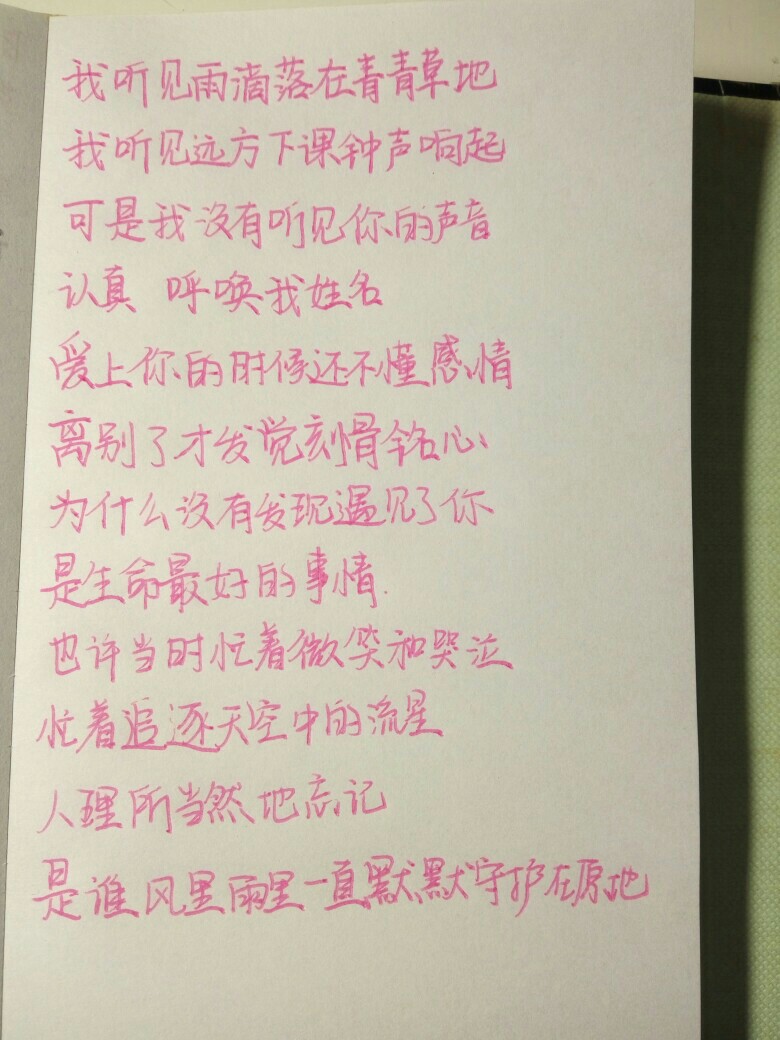 我听见雨滴落在青青草地
我听见远方下课钟声响起
可是我没有听见你的声音
认真 呼唤我姓名
爱上你的时候还不懂感情
离别了才发觉刻骨铭心
为什么没有发现遇见了你
是生命最好的事情.
也许当时忙着微笑和哭泣
忙着追逐天空中的流星
人理所当然地忘记
是谁风里雨里一直默默守护在原地